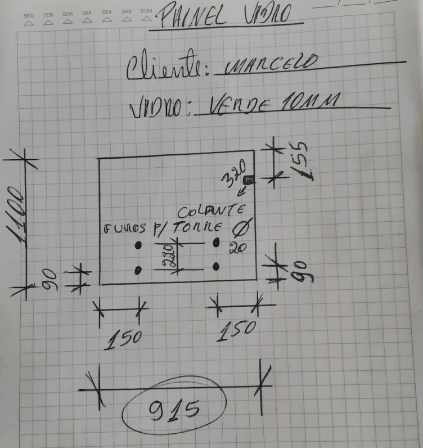 SEG TER QUA QUI SEX SAB DOM
PAINEL VIDRO
Cliente: MARCELO
VIDRO: VERDE 10MM
155
320
1100
COLANTE
FUROS P/ TORRE Ø
20
220
90
90
150
150
915